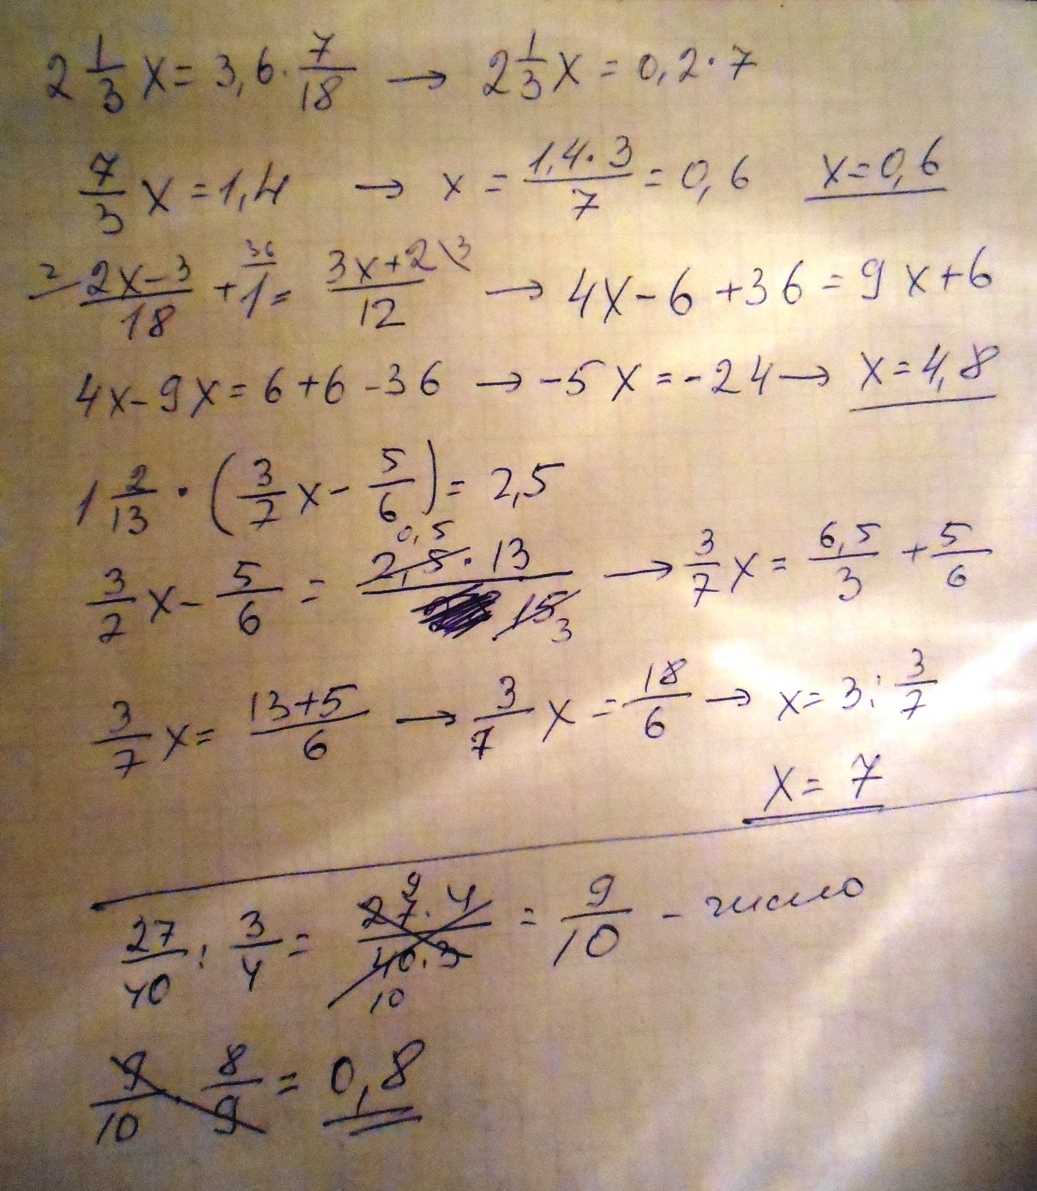 2 1/3 x = 3,6 · 7/18 → 2 1/3 x = 0,2 · 7
7/3 x = 1,4 → x = 1,4 · 3 / 7 = 0,6 x = 0,6
2 2x-3 / 18 + 36 1 = 3x+2 \3 / 12 → 4x - 6 + 36 = 9x + 6
4x - 9x = 6 + 6 - 36 → -5x = -24 → x = 4,8
1 2/13 · (3/7 x - 5/6) = 2,5
3/7 x - 5/6 = 0,5 2,5 · 13 / 15 3 → 3/7 x = 6,5/3 + 5/6
3/7 x = 13+5 / 6 → 3/7 x = 18/6 → x = 3 : 3/7
x = 7
27/40 : 3/4 = 9 27 · 4 / 40 · 3 10 = 9/10 - число
9/10 · 8/9 = 0,8